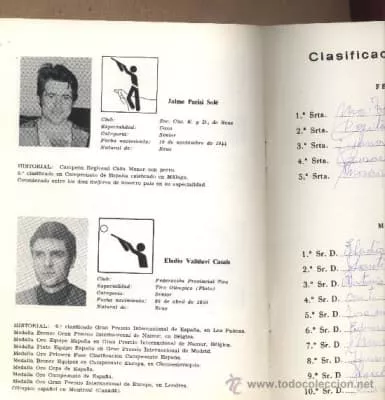 Jaime Parisi Solé
Club: Soc. Caz. E. y D., de Reus
Especialidad: Caza
Categoría: Senior
Fecha nacimiento: 10 de noviembre de 1944
Natural de: Reus
HISTORIAL: Campeón Regional Caza Menor con perro.
6.º clasificado en Campeonato de España celebrado en Málaga.
Considerado entre los diez mejores de nuestro país en su especialidad.
Eladio Vallduví Casals
Club: Federación Provincial Tiro
Especialidad: Tiro Olímpico (Plato)
Categoría: Senior
Fecha nacimiento: de abril de 1950
Natural de: Reus
HISTORIAL: 6.º clasificado Gran Premio Internacional de España, en Las Palmas.
Medalla Bronce Gran Premio Internacional de Namur, en Bélgica.
Medalla Oro Equipo España en Gran Premio Internacional de Namur, en Bélgica.
Medalla Plata Equipo España en Gran Premio Internacional de Madrid.
Medalla Oro Primera Fase Clasificación Campeonato España.
Medalla Bronce Equipos en Campeonato Europa, en Checoslovaquia.
Medalla Oro Copa de España.
Medalla Oro Campeonato de España.
Medalla Oro Gran Premio Internacional de Europa, en Londres.
Olímpico español en Montreal (Canadá).
Clasificac
FE
1.ª Srta.
2.ª Srta.
3.ª Srta.
4.ª Srta.
5.ª Srta.
M
1.º Sr. D. Eladio
2.º Sr. D.
3.º Sr. D.
4.º Sr. D.
5.º Sr. D.
6.º Sr. D.
7.º Sr. D.
8.º Sr. D.
9.º Sr. D.
10.º Sr. D.
todocoleccion
www.todocoleccion.net